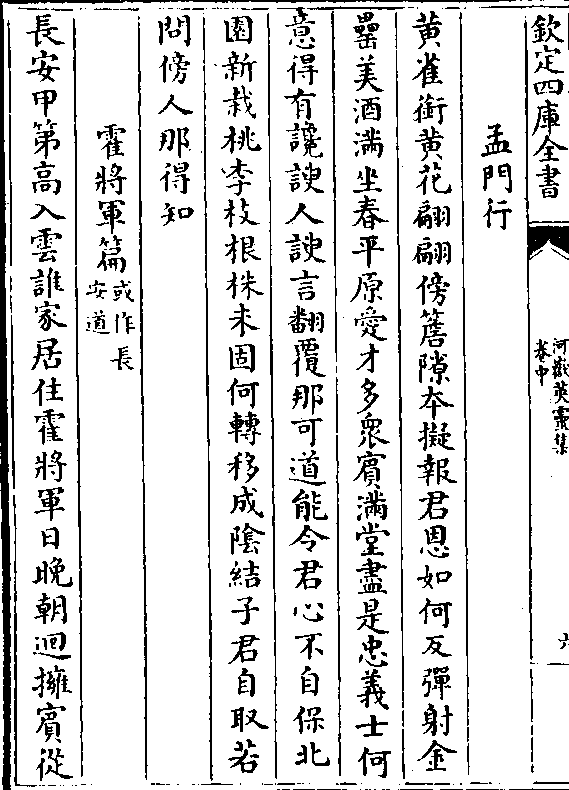 欽定四庫全書
河嶽英靈集
卷中
六
孟門行
黄雀銜黄花翩翩傍簷隙夲擬報君恩如何反彈射金
罍美酒滿坐春平原愛才多衆賓滿堂盡是忠義士何
意得有讒諛人諛言翻覆那可道能令君心不自保北
園新栽桃李枝根株未固何轉移成陰結子君自取若
問傍人那得知
霍將軍篇或作長
安道
長安甲第高入雲誰家居住霍將軍日晚朝迴擁賓從